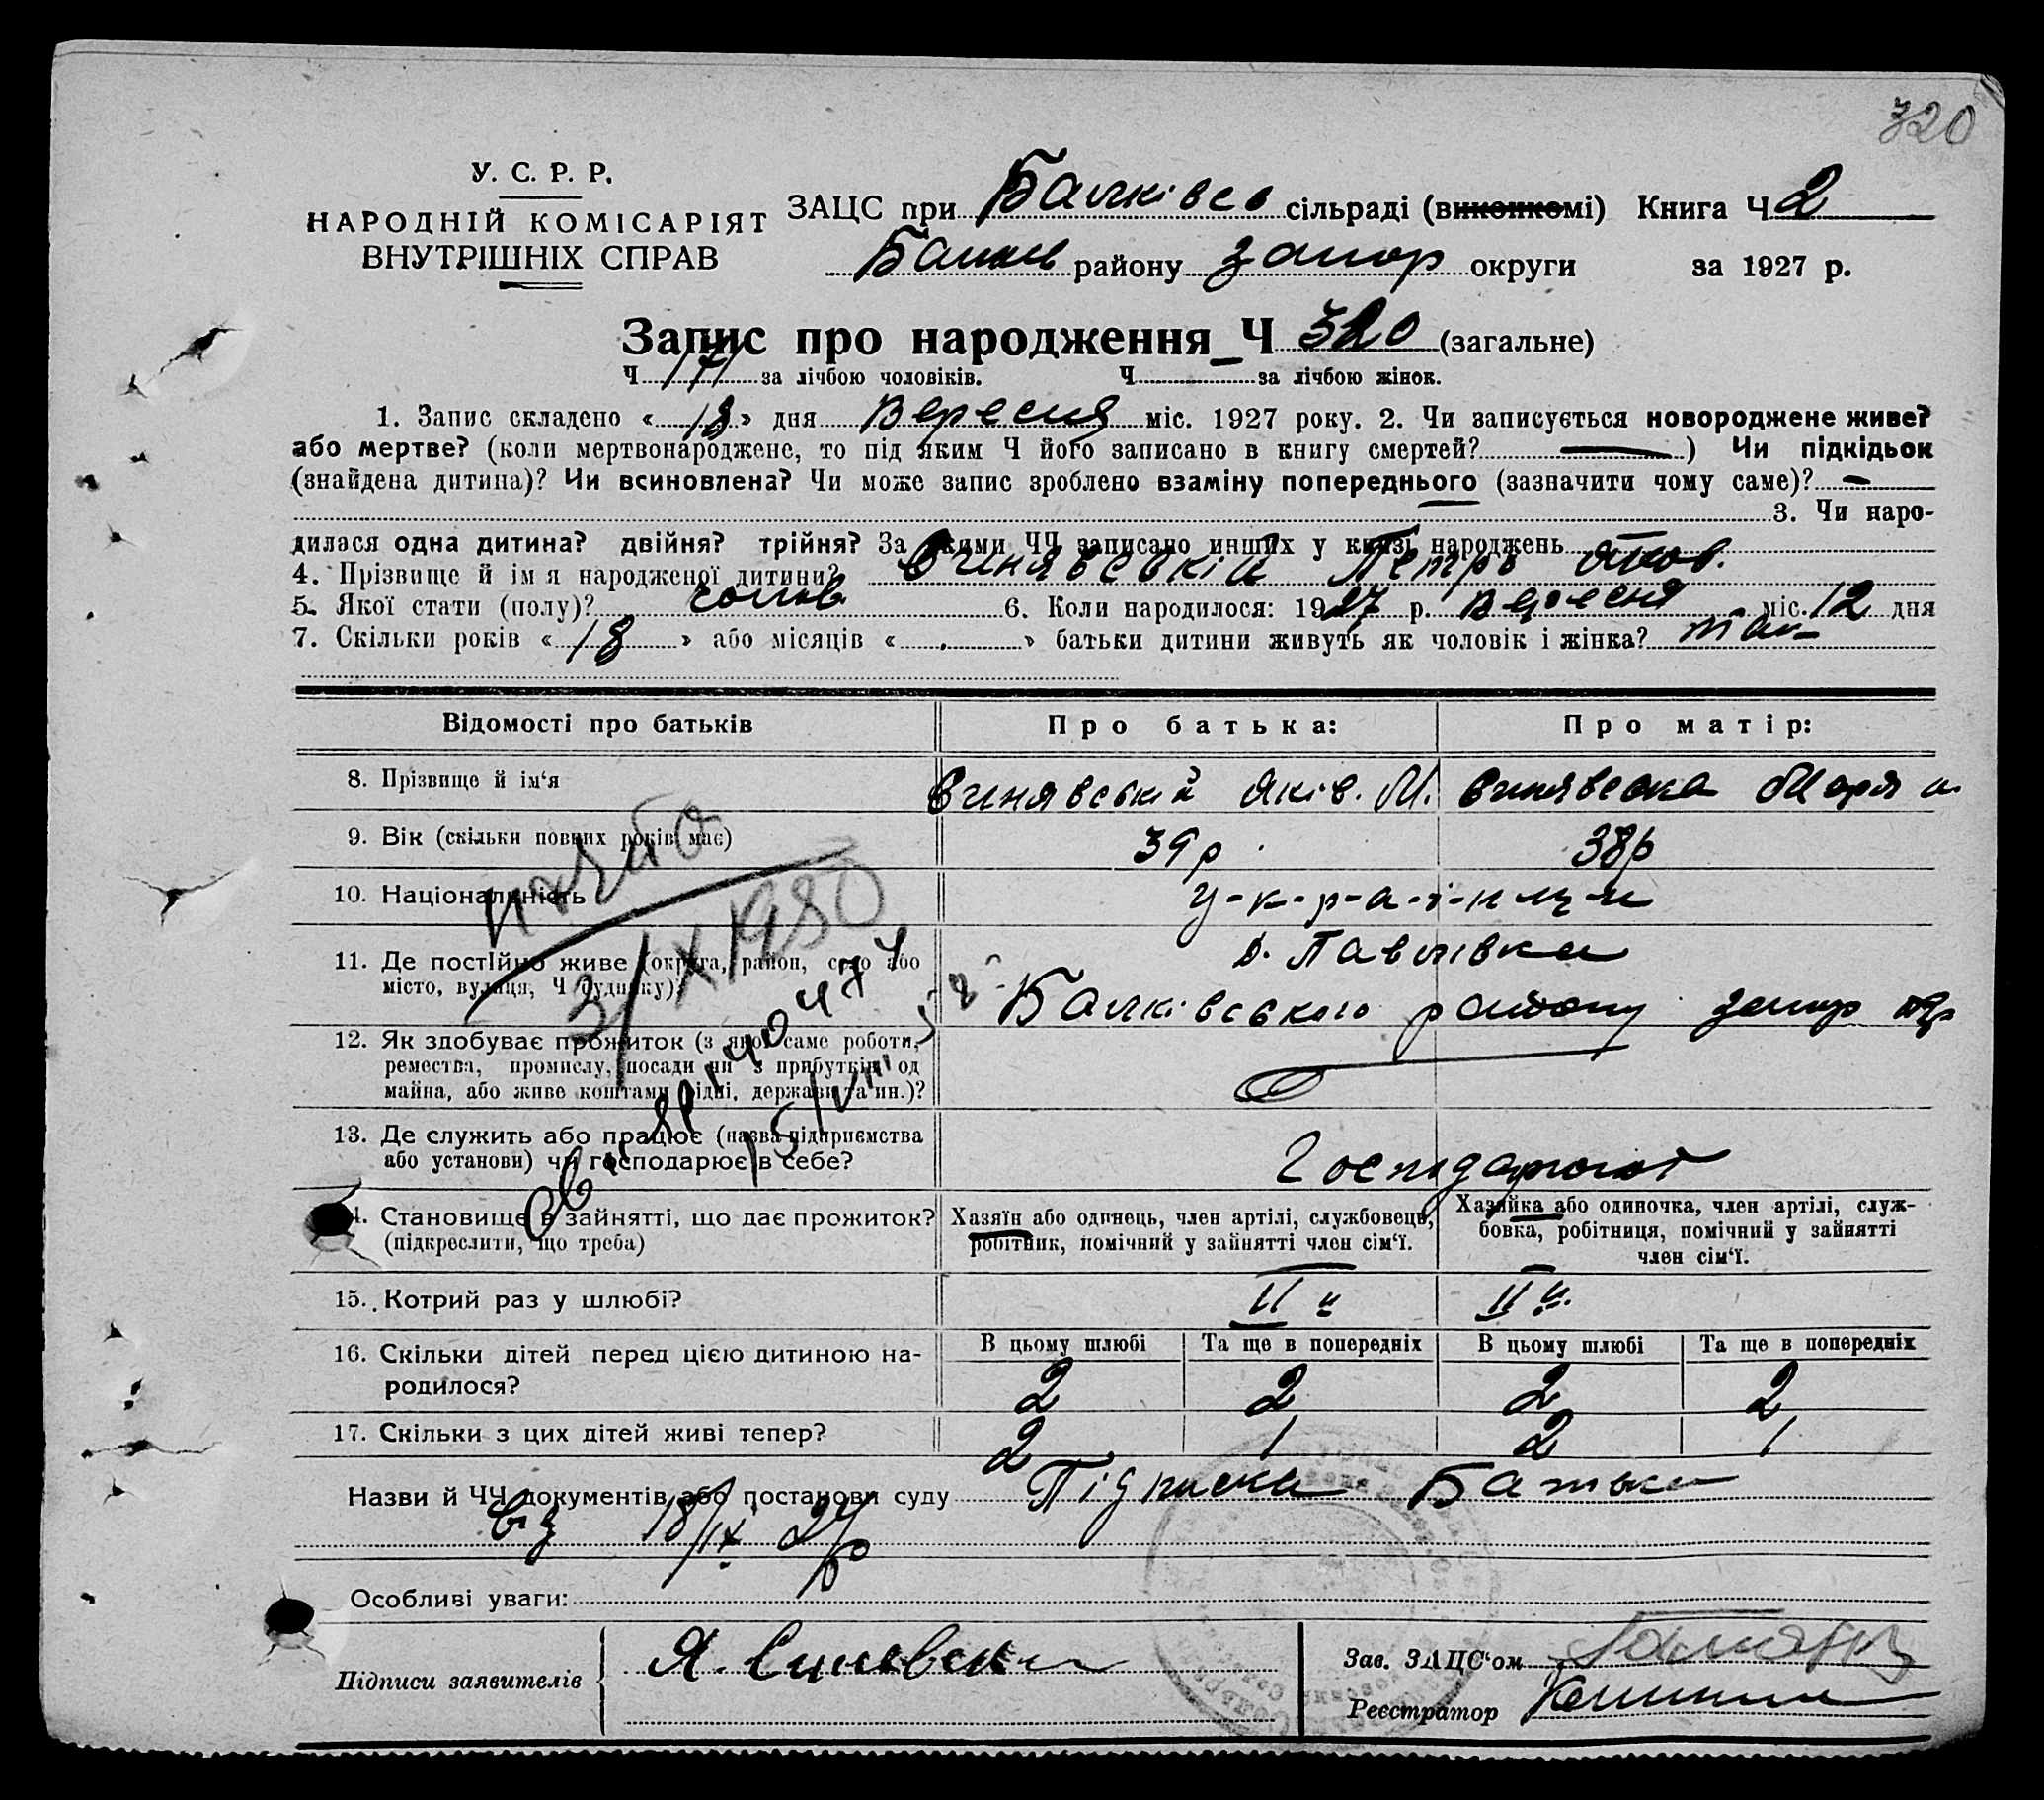 320
У. С. Р. Р.
НАРОДНІЙ КОМІСАРІЯТ
ВНУТРІШНІХ СПРАВ
ЗАЦС при Балківсо сільраді (виконкомі) Книга Ч 2
району Запор округи за 1927 р.
Запис про народження Ч 320 (загальне)
Ч 171 за лічбою чоловіків. Ч за лічбою жінок.
1. Запис складено « 18 » дня Вересня міс. 1927 року. 2. Чи записується новороджене живе?
або мертве? (коли мертвонароджене, то під яким Ч його записано в книгу смертей? —) Чи підкідьок
(знайдена дитина)? Чи всиновлена? Чи може запис зроблено взаміну попереднього (зазначити чому саме)? —
3. Чи наро-
дилася одна дитина? двійня? трійня? За якими ЧЧ записано инших у книзі народжень —
4. Прізвище й ім'я народженої дитини? Синявський Петро Яков.
5. Якої стати (полу)? чолов 6. Коли народилося: 1927 р. Вересня міс. 12 дня
7. Скільки років « 18 » або місяців « . » батьки дитини живуть як чоловік і жінка? так
Відомості про батьків Про батька: Про матір:
8. Прізвище й ім'я Синявській Яків. М. Синявська Марія
9. Вік (скільки повних років має) 39 р 38 р
10. Національність У-к-р-а-ї-н-ці
11. Де постійно живе (округа, район, село або с. Павлівка
місто, вулиця, Ч будинку)? Балківського району запор
12. Як здобуває прожиток (з якої саме роботи,
ремества, промислу, посади чи з прибутків од
майна, або живе коштами рідні, держави та ин.)?
13. Де служить або працює (назва підприємства
або установи) чи господарює в себе?
14. Становище в зайнятті, що дає прожиток? Хазяїн або одинець, член артілі, службовець, Хазяйка або одиночка, член артілі, служ-
(підкреслити, що треба) робітник, помічний у зайнятті член сім'ї. бовка, робітниця, помічний у зайнятті
член сім'ї.
15. Котрий раз у шлюбі? II й II й.
16. Скільки дітей перед цією дитиною на- В цьому шлюбі Та ще в попередніх В цьому шлюбі Та ще в попередніх
родилося? 2 2 2 2
17. Скільки з цих дітей живі тепер? 2 1 2 1
Назви й ЧЧ документів або постанови суду Підписка Батька
від 18/IX 27 р
Особливі уваги:
Підписи заявителів Я.
Зав. ЗАЦС'ом
Реєстратор